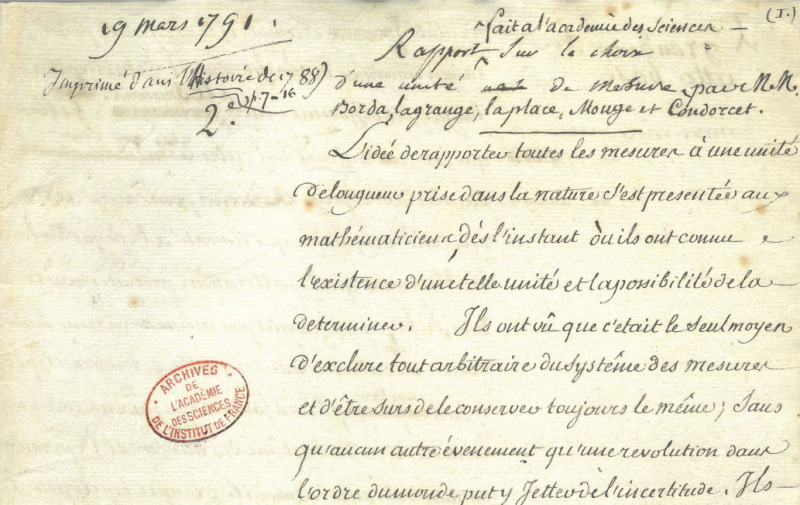 19 mars 1791.
(1.)
fait a l'academie des Sciences
Rapport sur le choix
d'une unité de mesure, par M.M.
Borda, lagrange, la place, Monge et Condorcet.
Imprimé dans l'Histoire de 1788)
2.e p. 7-16
L'idée de rapporter toutes les mesures à une unité
de longueur prise dans la nature s'est presentée aux
mathématiciens dès l'instant où ils ont connu
l'existence d'une telle unité et la possibilité de la
determiner. Ils ont vû que c'était le seul moyen
d'exclure tout arbitraire du système des mesures
et d'être surs de le conserver toujours le même; sans
qu'aucun autre évenement qu'une revolution dans
l'ordre du monde put y Jetter de l'incertitude. Ils
ARCHIVES
DE
L'ACADÉMIE
DES SCIENCES
DE L'INSTITUT DE FRANCE